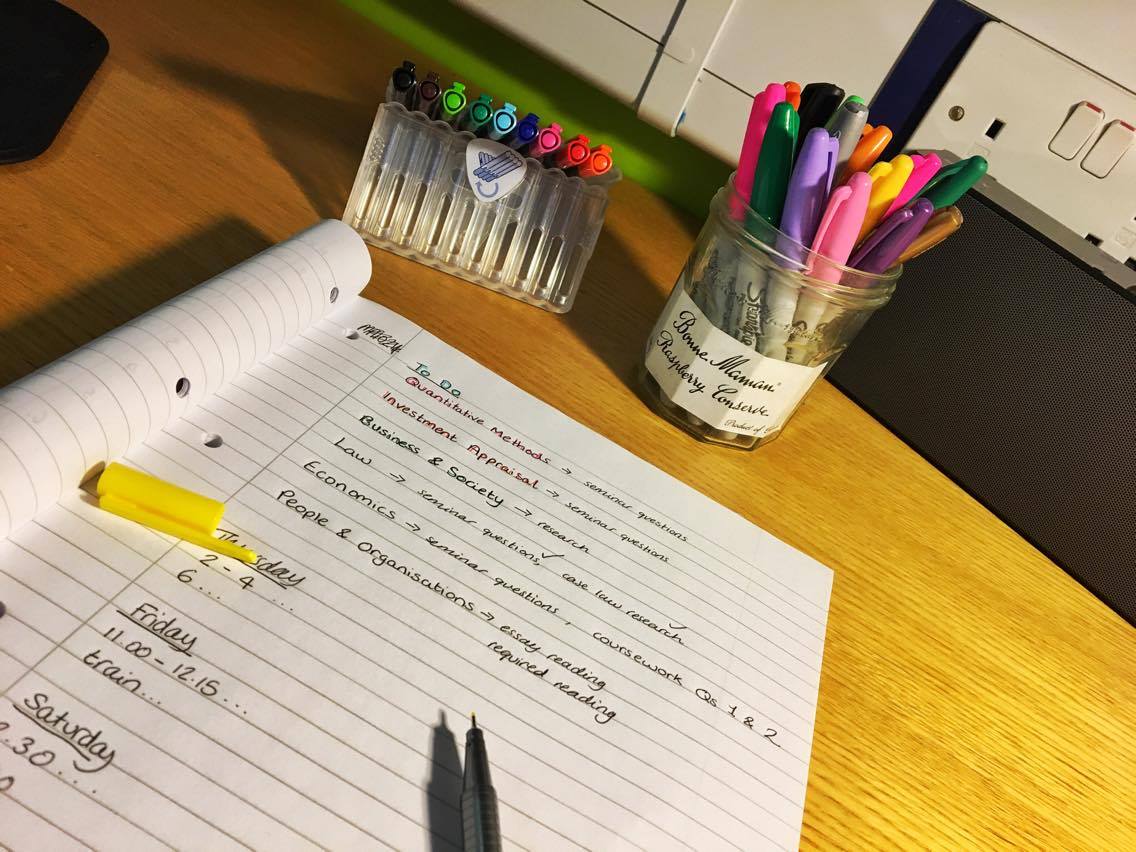 To Do
Quantitative Methods → seminar questions
Investment Appraisal → seminar questions
Business & Society → research
Law → seminar questions, ✓ case law research ✓
Economics → seminar questions, coursework Qs 1 & 2
People & Organisations → essay reading
required reading
Thursday
2 - 4 ...
6 ....
Friday
11.00 - 12.15 ....
train...
Saturday
.30 ....
Bonne Maman
Raspberry Conserve
Product of